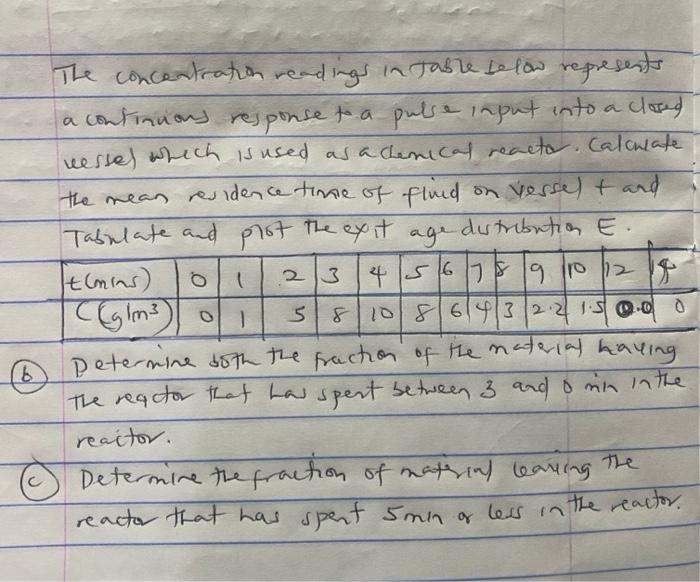 The concentration readings in table below represents
a continuous response to a pulse input into a closed
vessel which is used as a chemical reactor. Calculate
the mean residence time of fluid on vessel t and
Tabulate and plot the exit age distribution E.
t(mins) 0 1 2 3 4 5 6 7 8 9 10 12
C(g/m³) 0 1 5 8 10 8 6 4 3 2.2 1.5 0.0 0
(b) Determine both the fraction of the material having
the reactor that has spent between 3 and 6 min in the
reactor.
(c) Determine the fraction of material leaving the
reactor that has spent 5min or less in the reactor.